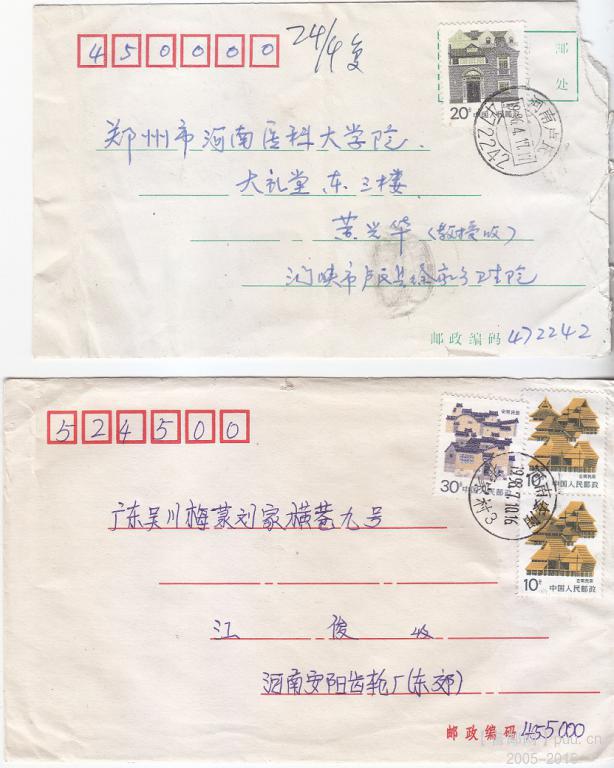 450000
24/4复
邮
处
20分 中国人民邮政
河南卢氏
472242
郑州市河南医科大学院、
大礼堂东三楼
黄兴华(教授收)
门峡市卢氏县徐家乡卫生院
邮政编码 472242
524500
安徽民居
30分 中国人民邮政
云南民居
10分 中国人民邮政
云南民居
10分 中国人民邮政
河南安阳
广东吴川梅菉刘家横巷九号
江俊收
河南安阳齿轮厂(东郊)
邮政编码 455000
2005-2016